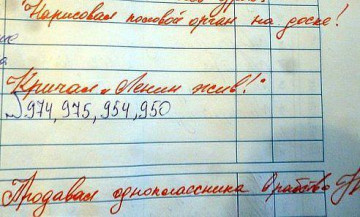 "Нарисовал половой орган на доске!
Кричал „Ленин жив!"
974, 975, 954, 950
Продавал одноклассника в рабство